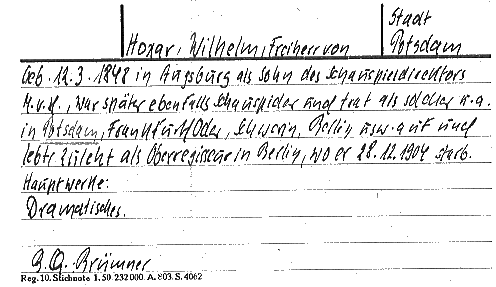 Stadt
Hoxar, Wilhelm, Freiherr von Potsdam
Geb. 12.3.1848 in Augsburg als Sohn des Schauspieldirektors
H.v.H., war später ebenfalls Schauspieler und trat als solcher u.a.
in Potsdam, Frankfurt/Oder, Schwerin, Berlin usw. auf und
lebte zuletzt als Oberregisseur in Berlin, wo er 28.12.1904 starb.
Hauptwerke:
Dramatisches.
Brümner
Reg. 10. Stichnote 1. 50 232000. A. 803. S. 4062